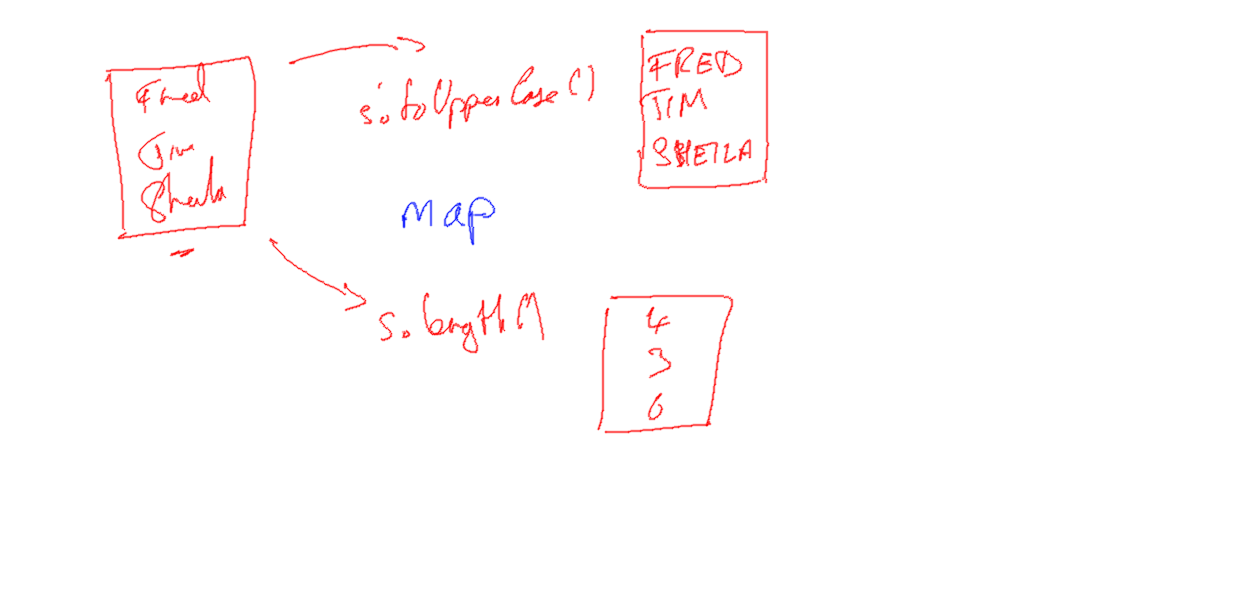 Fred
Jim
Sheila
s.toUpperCase()
FRED
JIM
SHEILA
Map
s.length()
4
3
6